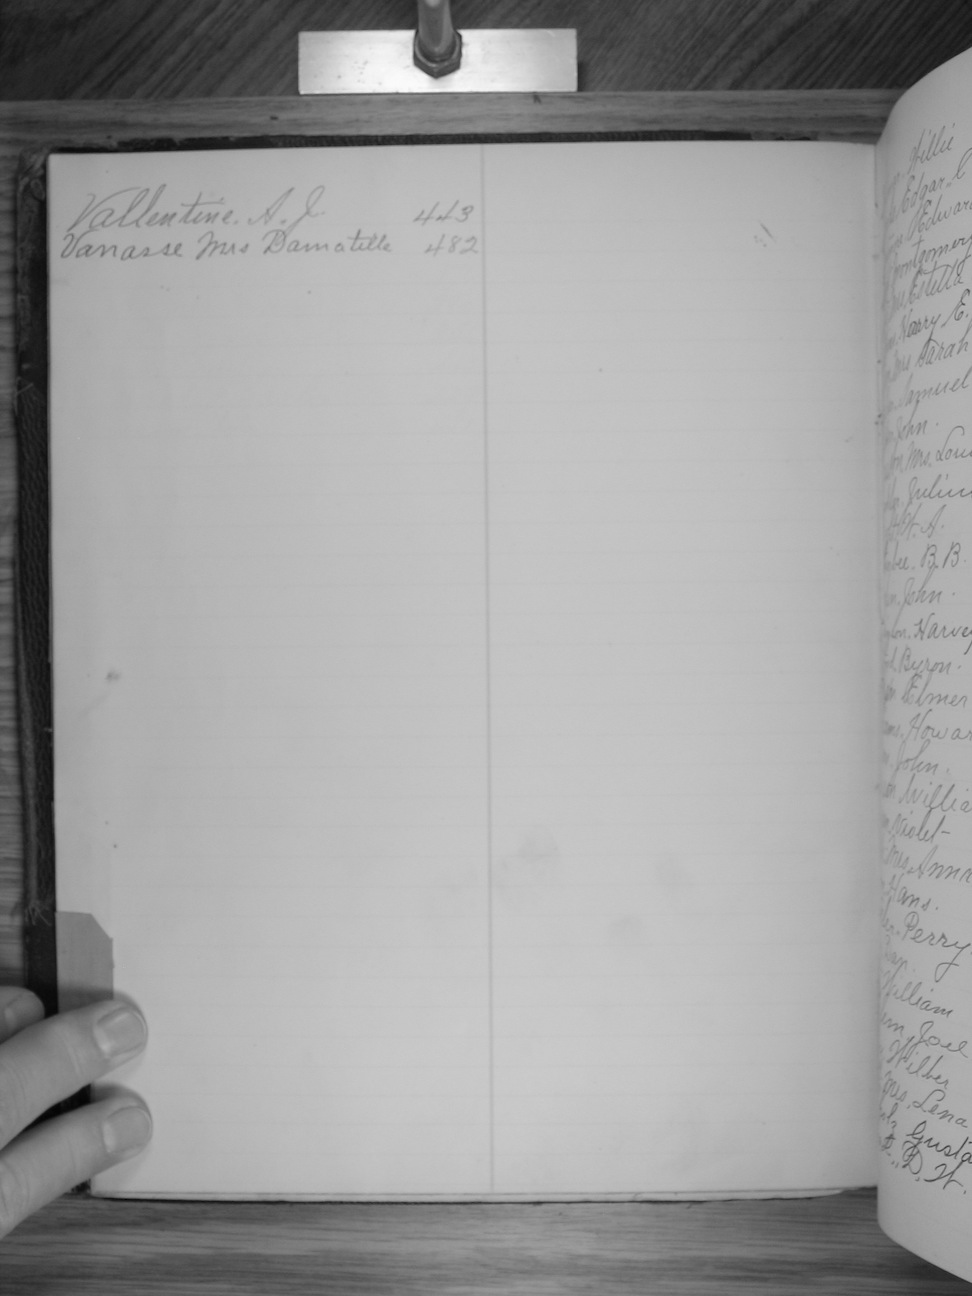 Vallentine. A. J. 443
Vanasse Mrs Damatille 482
Willie
Edgar. C
Edward
Montgomery
Estella
Harry E.
Mrs Sarah
Samuel
John.
Mrs. Lou
Julius
W. A.
B. B.
John.
Harvey
Byron.
Elmer
Howar
John.
Willia
Violet
Mrs. Anna
Hans.
Perry.
William
Joel
Wilber
Mrs. Lena
Gusta
D. W.